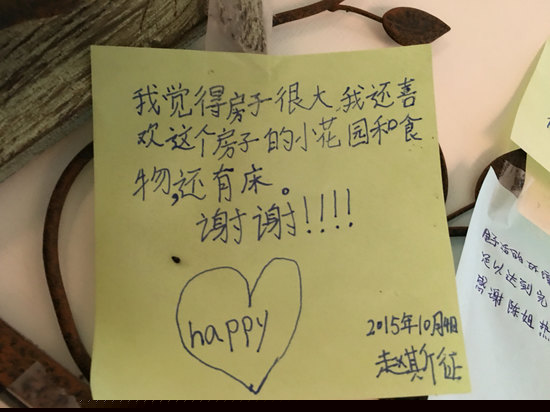 我觉得房子很大,我还喜
欢这个房子的小花园和食
物,还有床。
谢谢!!!!
happy
2015年10月4日
赵斯征
足以达到完
感谢陈姐